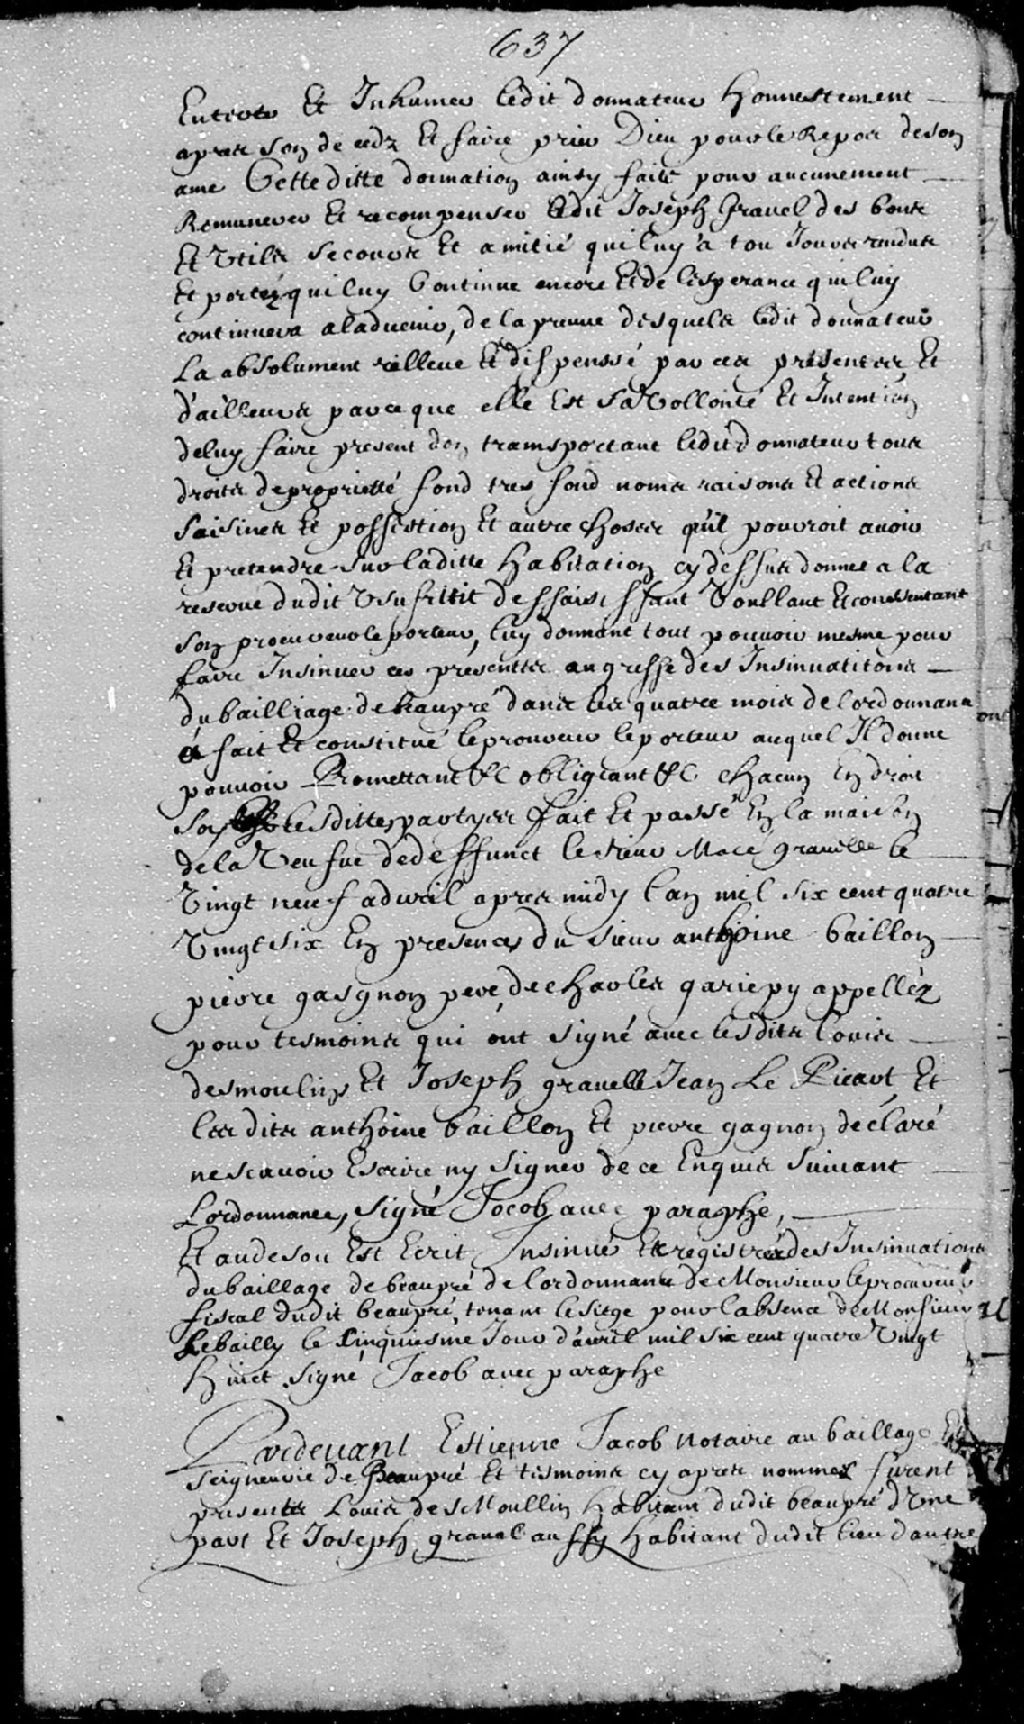 637
Entrer Et Inhumer ledit donnateur Honnestement
apres son decedz Et faire prier Dieu pour le Repos de son
ame Cette ditte donnation ainsy faite pour aucunement
Remunerer Et recompenser ledit Joseph Gravel des bons
Et Utils secours Et amitié qu'il luy à tou Jours rendus
Et portéz qu'il luy Continue encore Et de l'esperance qu'il luy
continuera a laduenir, de la preuue desquels ledit donnateur
La absolument relleue Et dispenssé par ces presentes Et
d'ailleurs parce que elle Est sa Vollonté Et Intention
de luy faire present don transportant ledit donnateur tous
droits de proprietté fond tres fond noms raisons Et actions
saisines Et possestion Et autre choses qu'il pouvroit auoir
Et pretendre sur laditte Habitation cy dessus donnee a la
reserue dudit Usufruit dessaisissant Voullant Et consentant
son procureur le porteur, luy donnant tout pouuoir mesme pour
faire Insinuer ces presentes au greffe des Insinuatitons
du bailliage de beaupré dans les quatre mois de lordonnance
a fait Et constitué le procureur le porteur auquel Il donne
pouuoir Promettant &c obligeant &c chacun En droit
soy lesdittes partyes fait Et passé En la maison
de la Veufue de deffunct le sieur Macé gravelle le
Vingt neuf adveril apres midy lan mil six cent quatre
Vingt six En presences du sieur anthoine baillon
pierre gasgnon pere, de charles gariepy appelléz
pour tesmoins qui ont signé auec lesdits Louis
desmoulins Et Joseph gravelle Jean Le Picart Et
les dits anthoine baillon Et pierre gagnon déclaré
ne scauoir Escrire ny signer de ce Enquis suivant
Lordonnance, signé Jacob auec paraphe,
Et au desou Est Ecrit Insinué Et registré es des Insinuations
du baillage de beaupré de lordonnance de Monsieur le procureur
fiscal dudit beaupré, tenant le siege pour labsence de Monsieur
Le bailly le Cinquiesme Jour d'avril mil six cent quatre Vingt
Huict signé Jacob auec paraphe
Pardevant Estienne Jacob Notaire au baillage Et
seigneurie de Beaupré Et tesmoins cy apres nommez furent
presents Louis des Moullin Habitant dudit beaupré d'Une
part Et Joseph gravel aussy Habitant dudit lieu dautre